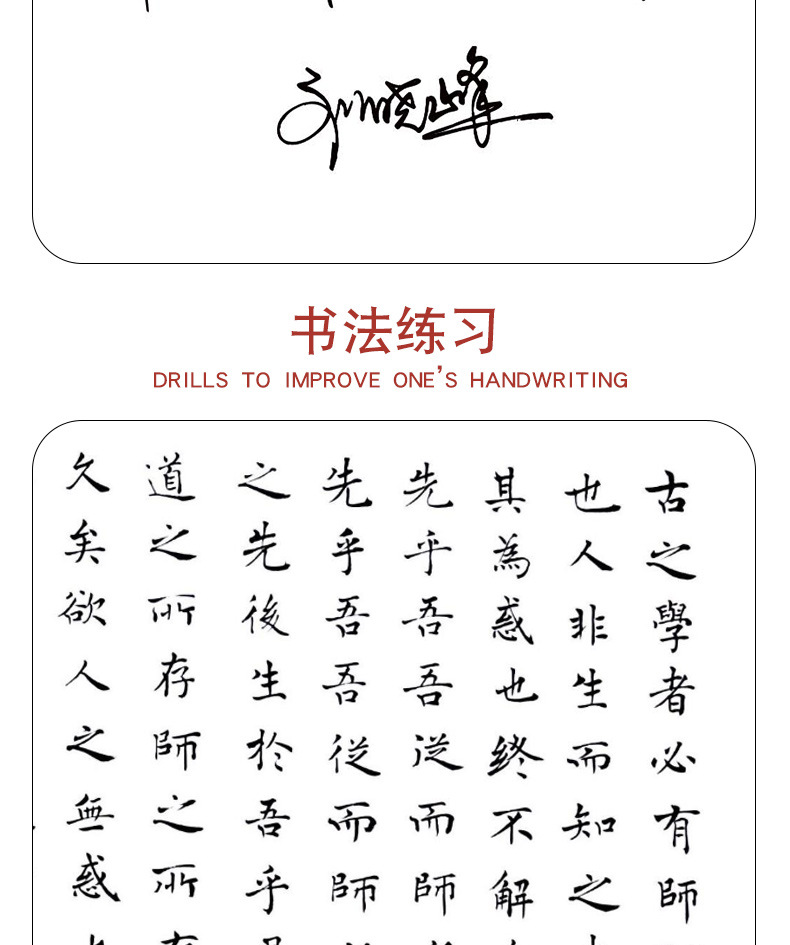 晓峰
书法练习
DRILLS TO IMPROVE ONE'S HANDWRITING
古之學者必有師
也人非生而知之
其為惑也終不解
先乎吾吾從而師
先乎吾吾從而師
之先後生於吾乎
道之所存師之所
久矣欲人之無惑